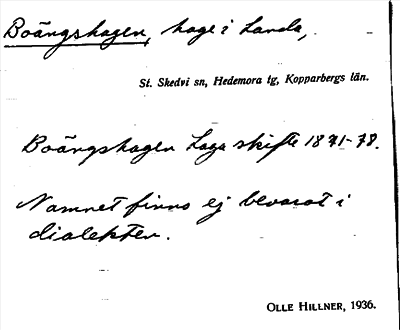 Boängshagen, hage i Landa,
St. Skedvi sn, Hedemora tg, Kopparbergs län.
Boängshagen Laga skifte 1871-78.
Namnet finns ej bevarat i
dialekten.
OLLE HILLNER, 1936.